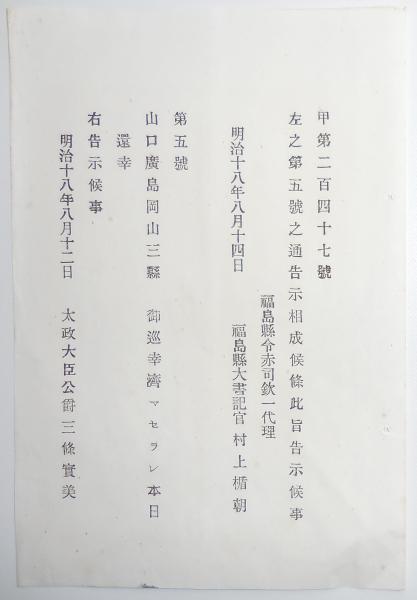 甲第二百四十七號
左之第五號之通告示相成候條此旨告示候事
福島縣令赤司欽一代理
明治十八年八月十四日 福島縣大書記官 村上楯朝
第五號
山口廣島岡山三縣 御巡幸濟マセラレ本日
還幸
右告示候事
明治十八年八月十二日 太政大臣公爵三條實美